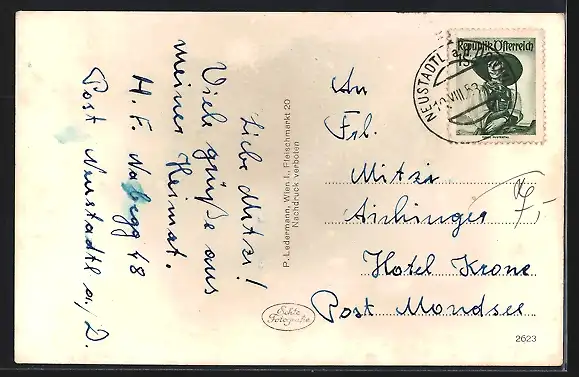 Liebe Mitzi!
Viele grüße aus
meiner Heimat.
H. F. Nabegg 48
Post Neustadtl a/D.
P. Ledermann, Wien I., Fleischmarkt 20
Nachdruck verboten
Echte
Fotografie
An
Frl.
Mitzi
Aichinger
Hotel Krone
Post Mondsee
Republik Österreich
NEUSTADTL a.d.
VIII.
7,-
2623